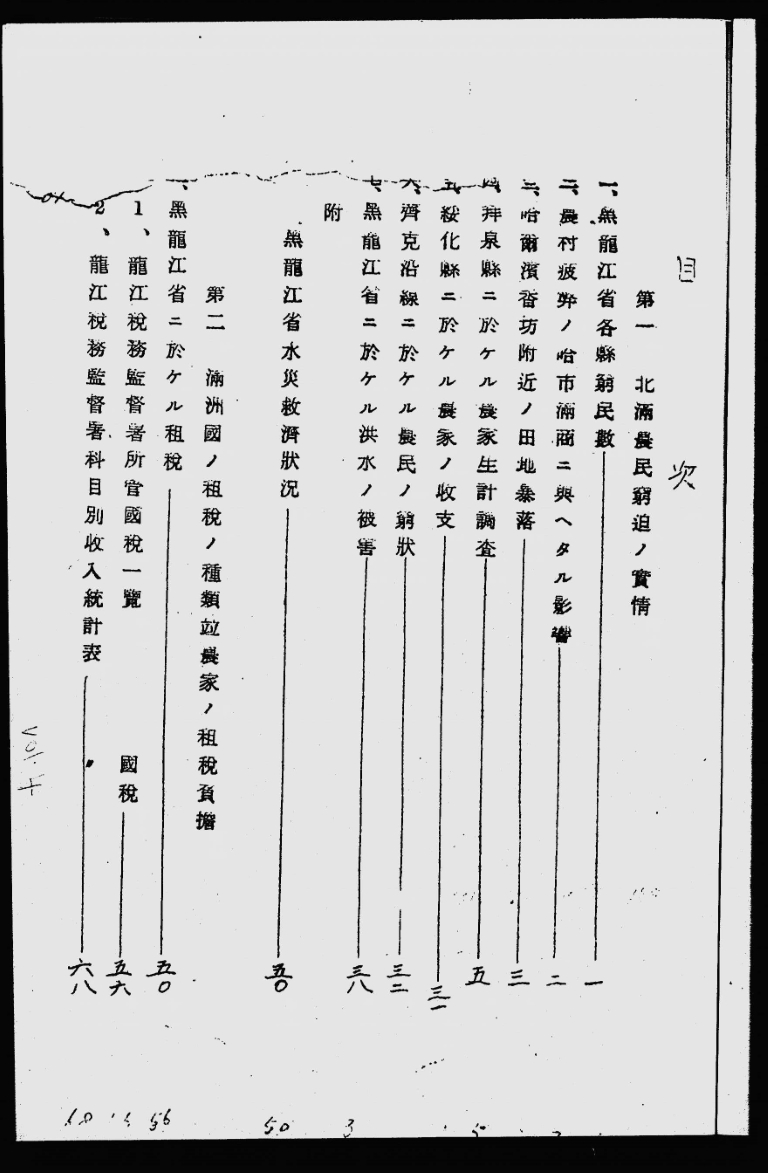 目次
第一 北滿農民窮迫ノ實情
一、黑龍江省各縣窮民數 一
二、農村疲弊ノ哈市滿商ニ與ヘタル影響 二
三、哈爾濱香坊附近ノ田地暴落 三
四、拜泉縣ニ於ケル農家生計調査 五
五、綏化縣ニ於ケル農家ノ收支 三一
六、齊克沿線ニ於ケル農民ノ窮狀 三二
七、黑龍江省ニ於ケル洪水ノ被害 三八
附
黑龍江省水災救濟狀況 五〇
第二 滿洲國ノ租稅ノ種類竝農家ノ租稅負擔
一、黑龍江省ニ於ケル租稅 五〇
1、龍江稅務監督署所管國稅一覽 國稅 五六
2、龍江稅務監督署科目別收入統計表 六八
Vol. 4
68
56
50
3
5